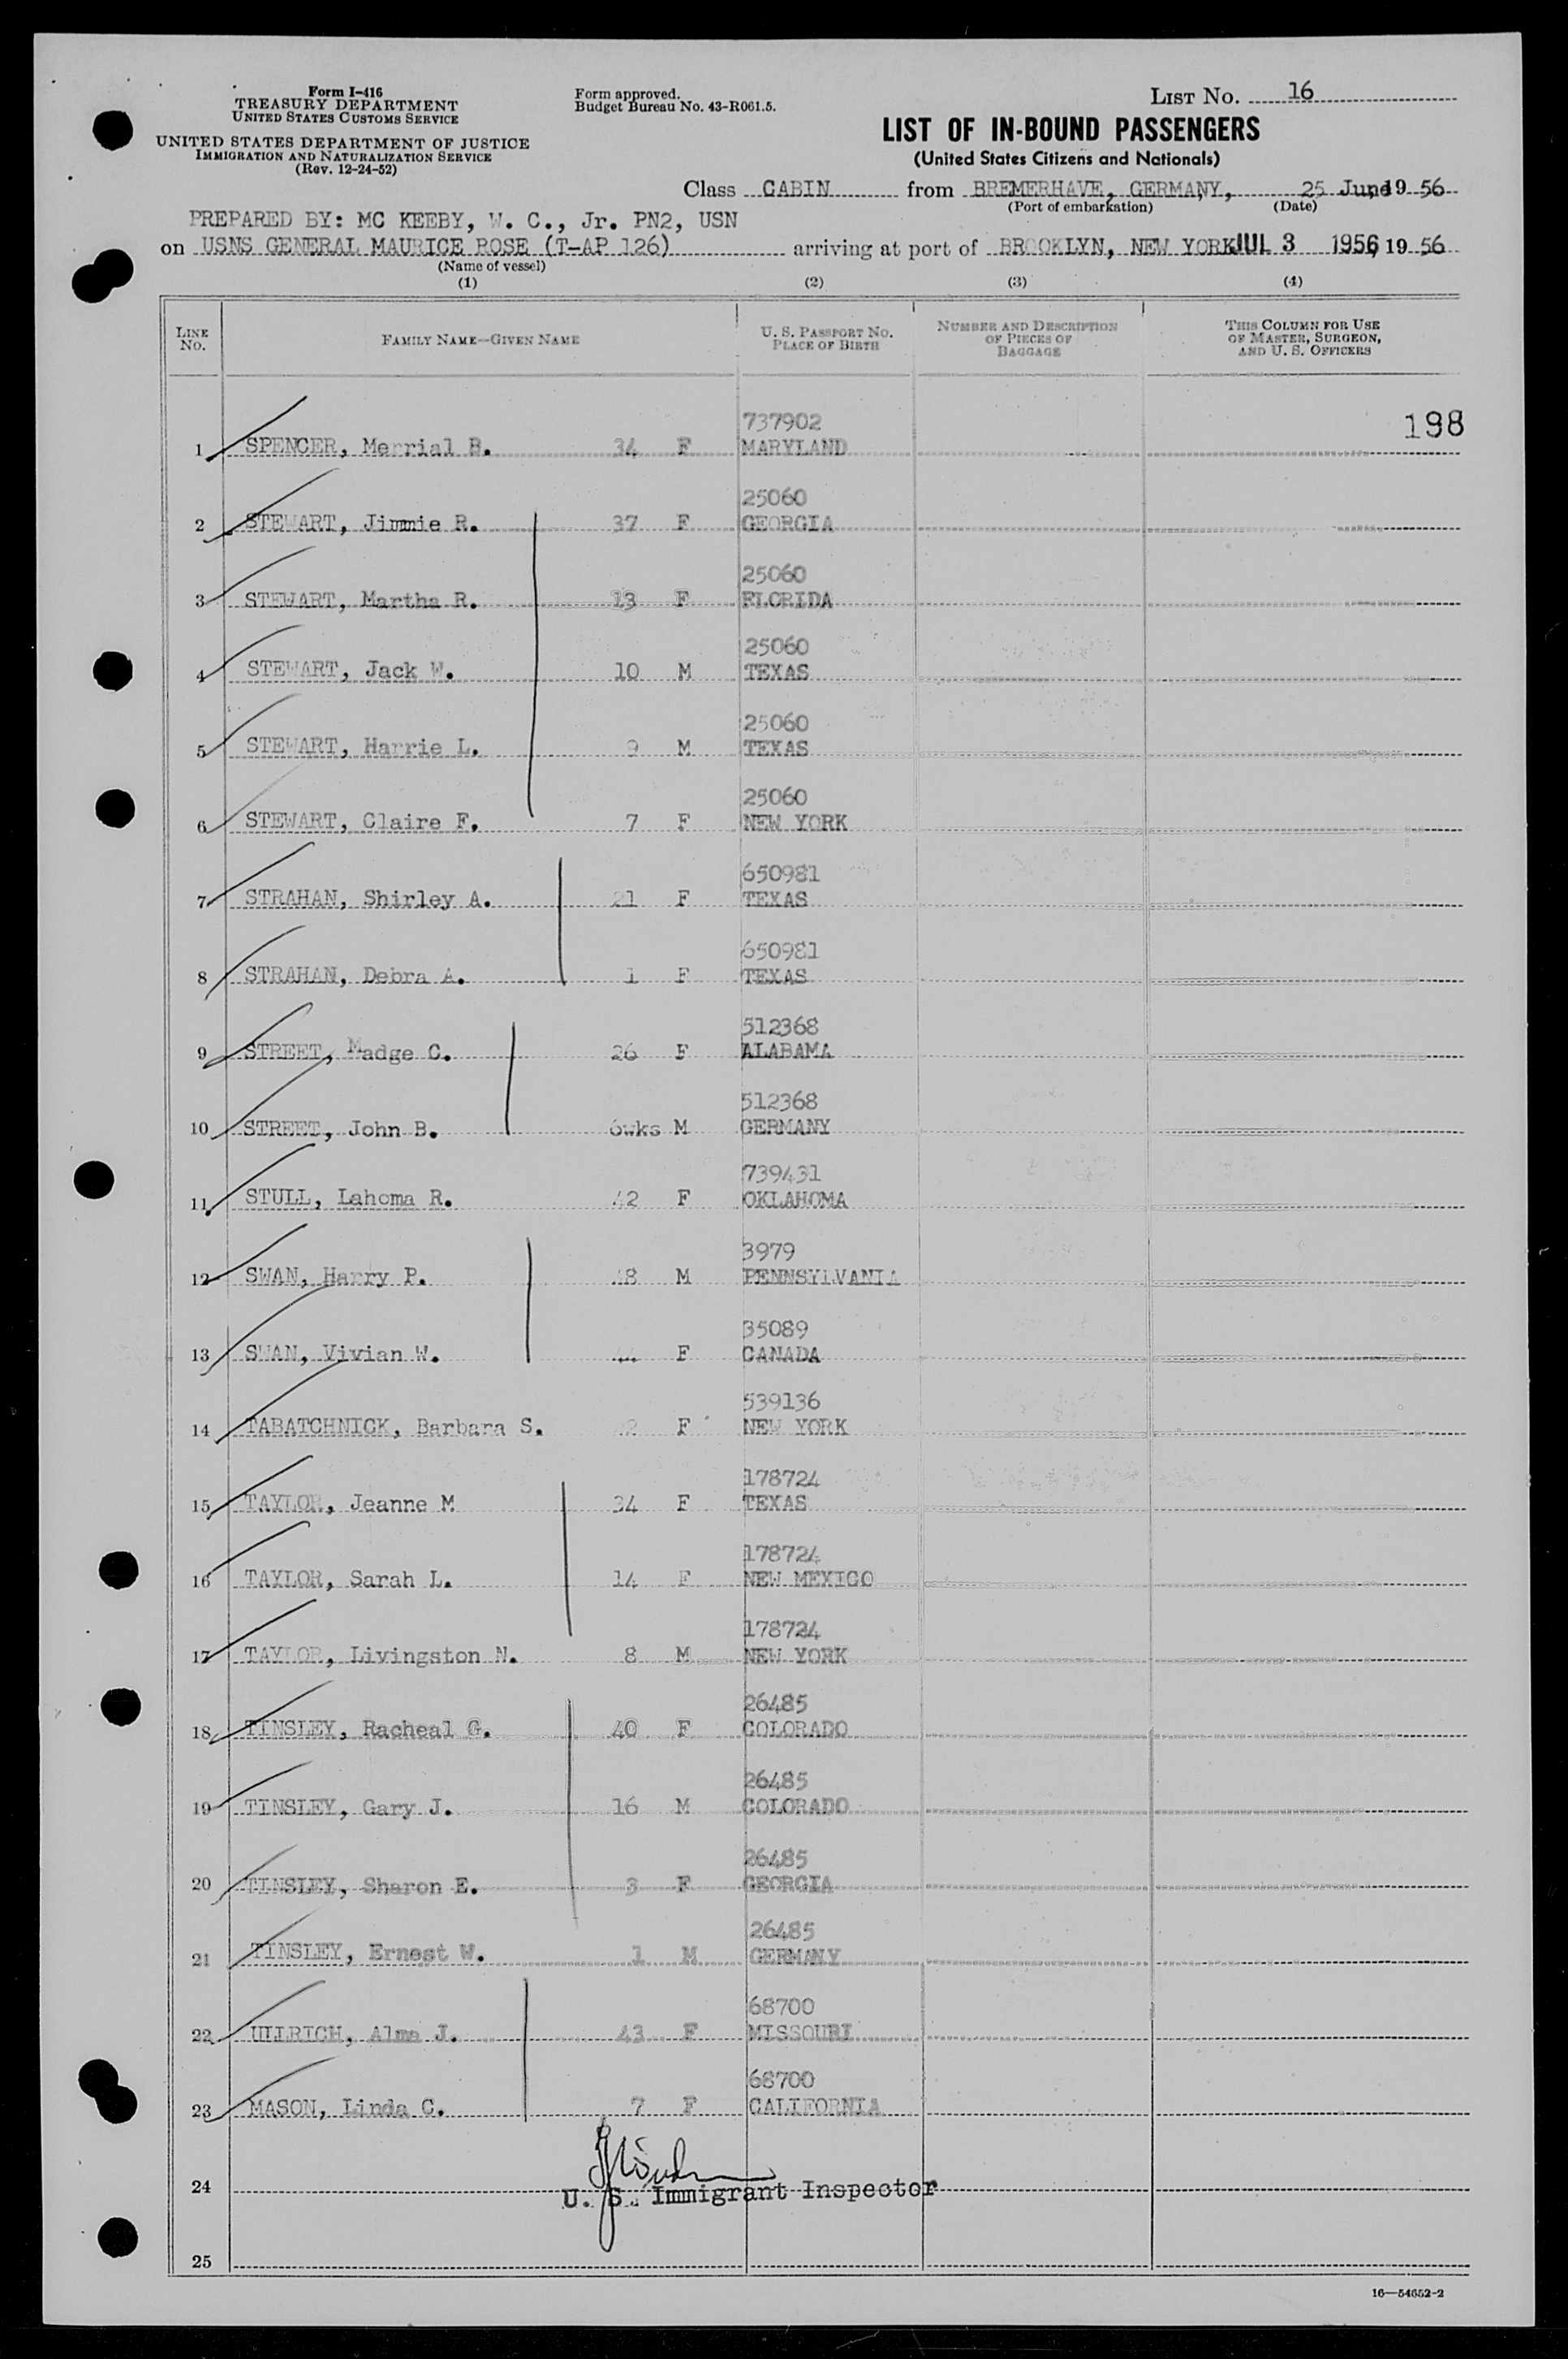 Form I-416
TREASURY DEPARTMENT
UNITED STATES CUSTOMS SERVICE
UNITED STATES DEPARTMENT OF JUSTICE
IMMIGRATION AND NATURALIZATION SERVICE
(Rev. 12-24-52)
Form approved.
Budget Bureau No. 43-R061.5.
LIST NO. 16
LIST OF IN-BOUND PASSENGERS
(United States Citizens and Nationals)
Class CABIN from BREMERHAVE, GERMANY, 25 June 19 56
(Port of embarkation) (Date)
PREPARED BY: MC KEEBY, W. C., Jr. PN2, USN
on USNS GENERAL MAURICE ROSE (T-AP 126) arriving at port of BROOKLYN, NEW YORK JUL 3 1956, 19 56
(Name of vessel)
(1) (2) (3) (4)
LINE NO. FAMILY NAME—GIVEN NAME U. S. PASSPORT NO. PLACE OF BIRTH NUMBER AND DESCRIPTION OF PIECES OF BAGGAGE THIS COLUMN FOR USE OF MASTER, SURGEON, AND U. S. OFFICERS
737902 198
1 SPENCER, Merrial B. 34 F MARYLAND
25060
2 STEWART, Jimmie R. 37 F GEORGIA
25060
3 STEWART, Martha R. 13 F FLORIDA
25060
4 STEWART, Jack W. 10 M TEXAS
25060
5 STEWART, Harrie L. 9 M TEXAS
25060
6 STEWART, Claire F. 7 F NEW YORK
650981
7 STRAHAN, Shirley A. 21 F TEXAS
650981
8 STRAHAN, Debra A. 1 F TEXAS
512368
9 STREET, Madge C. 26 F ALABAMA
512368
10 STREET, John B. 6wks M GERMANY
739431
11 STULL, Lahoma R. 42 F OKLAHOMA
3979
12 SWAN, Harry P. M PENNSYLVANIA
35089
13 SWAN, Vivian W. F CANADA
539136
14 TABATCHNICK, Barbara S. F NEW YORK
178724
15 TAYLOR, Jeanne M 34 F TEXAS
178724
16 TAYLOR, Sarah L. 14 F NEW MEXICO
178724
17 TAYLOR, Livingston N. 8 M NEW YORK
26485
18 TINSLEY, Racheal G. 40 F COLORADO
26485
19 TINSLEY, Gary J. 16 M COLORADO
26485
20 TINSLEY, Sharon E. 3 F GEORGIA
26485
21 TINSLEY, Ernest W. 1 M GERMANY
68700
22 ULLRICH, Alma J. 43 F MISSOURI
68700
23 MASON, Linda C. 7 F CALIFORNIA
24
U. S. Immigrant Inspector
25
16—54652-2